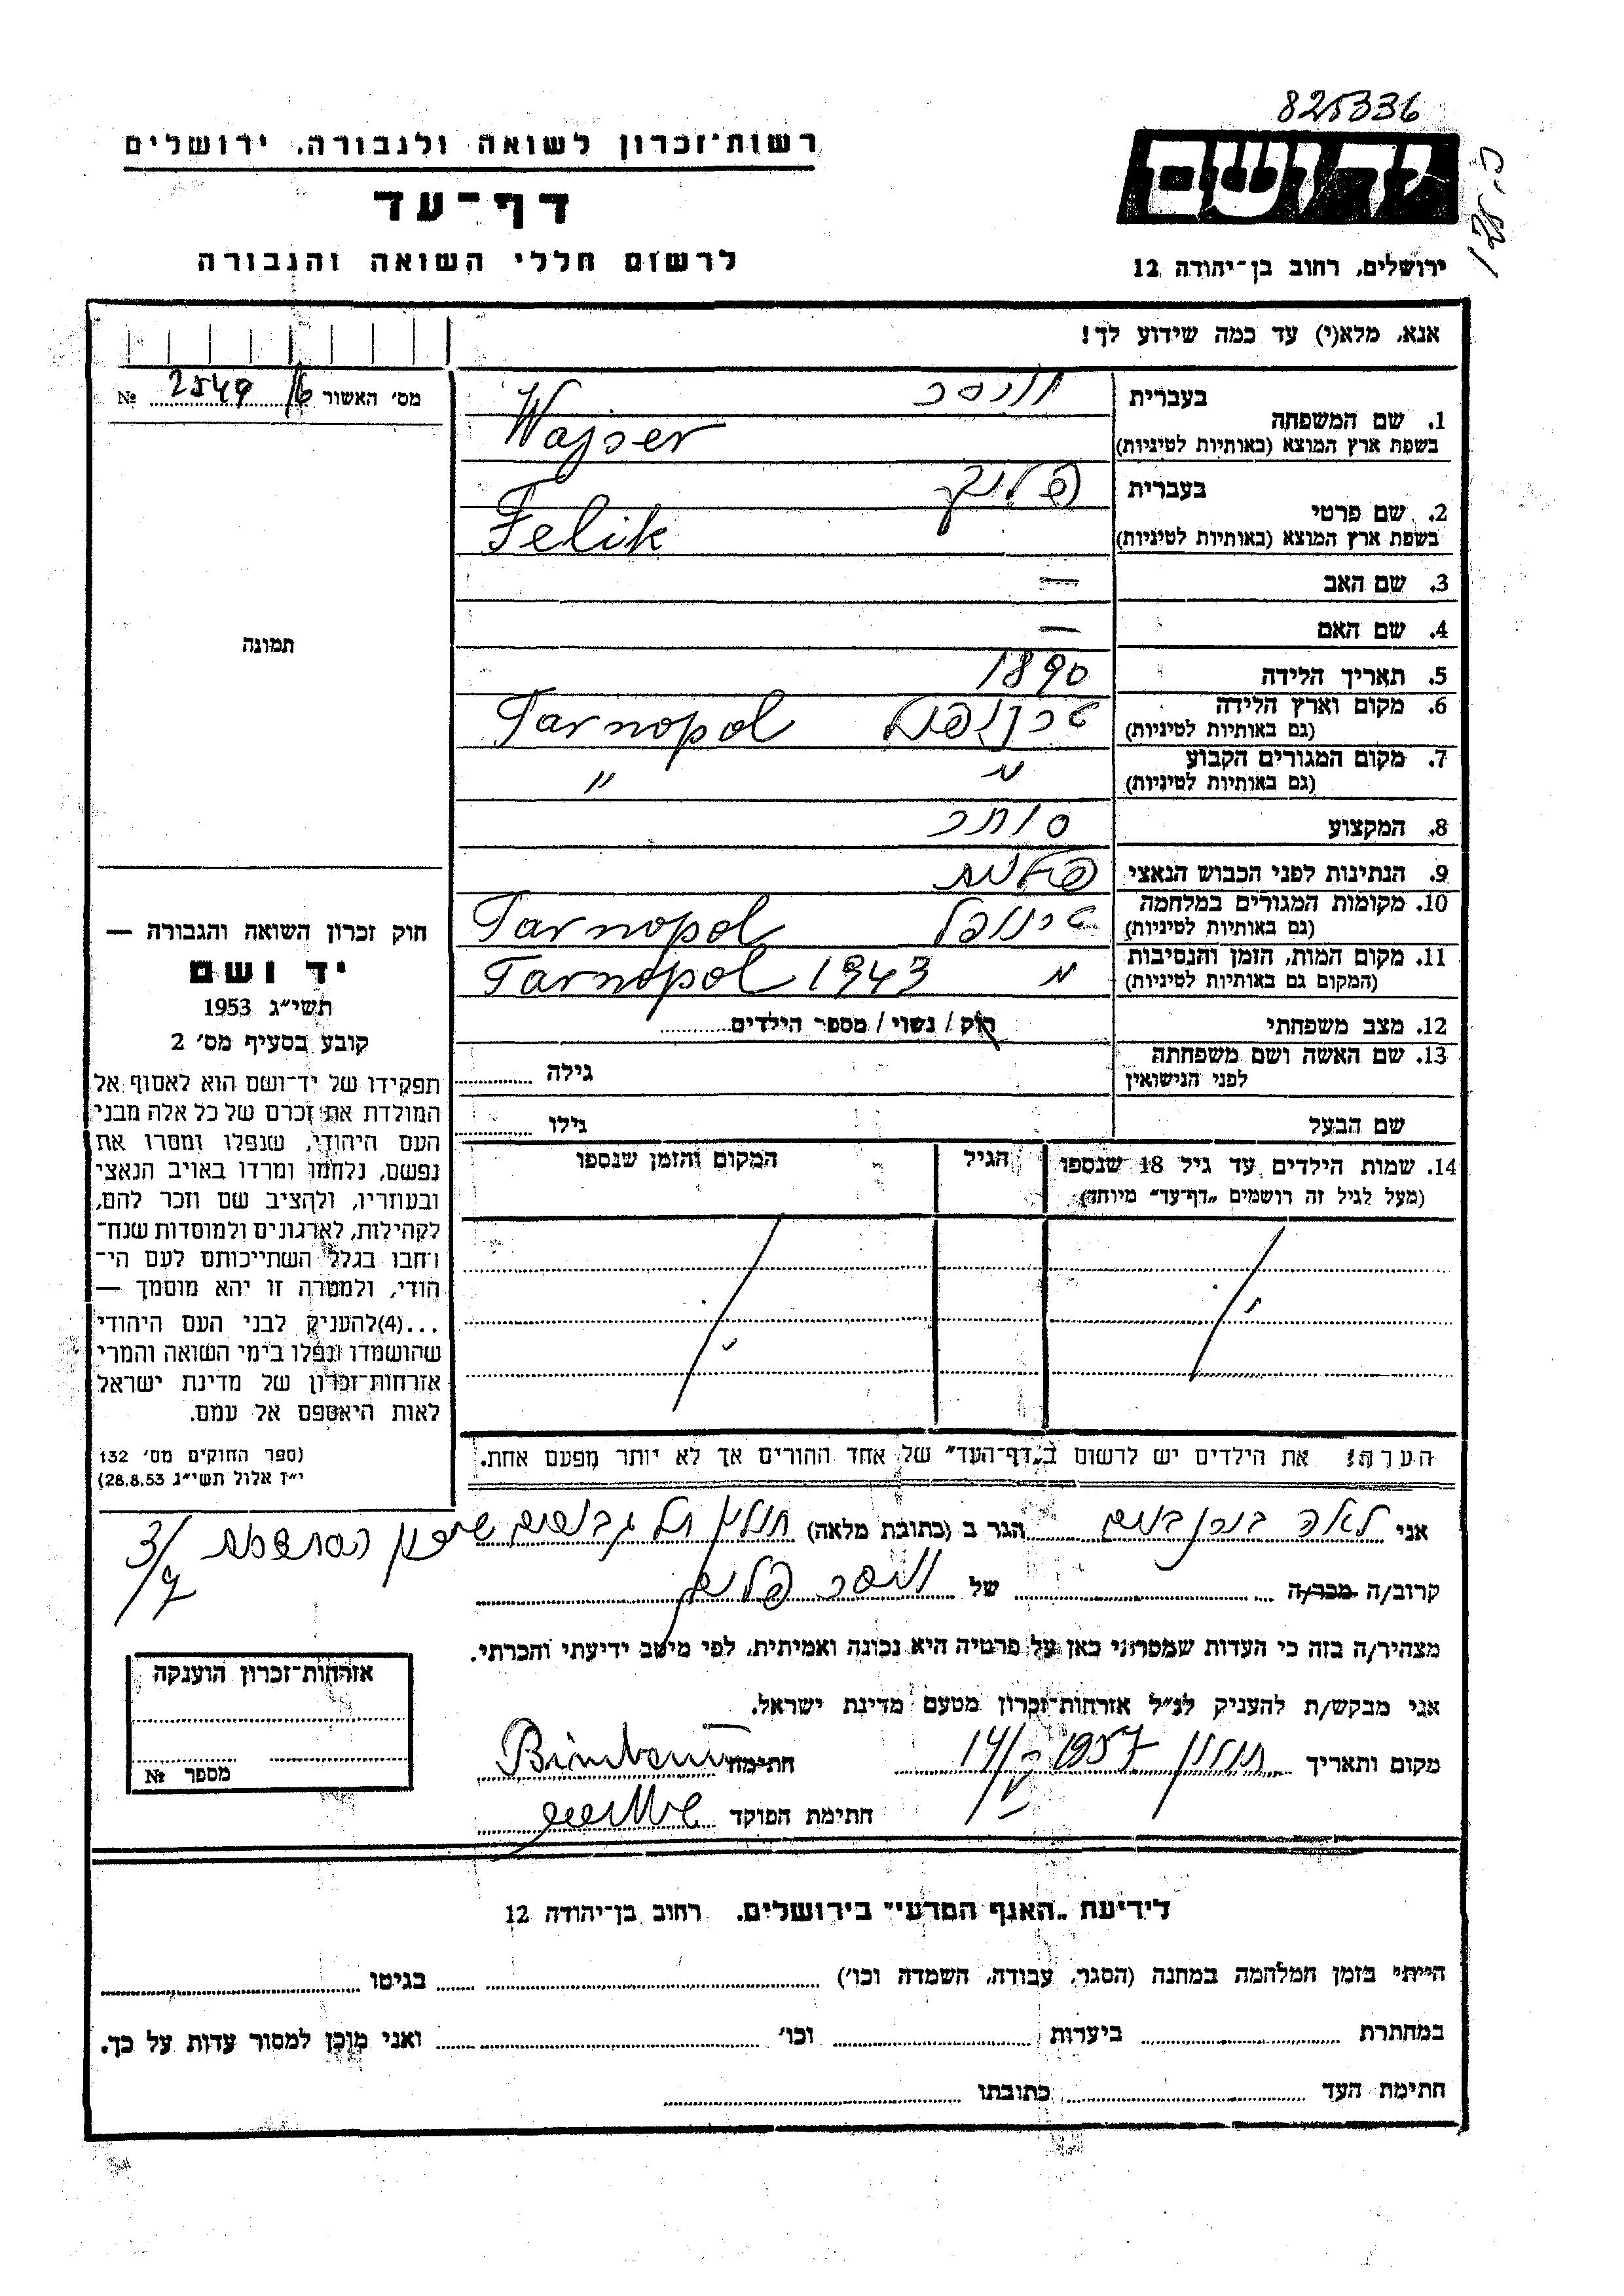 825336
רשות־זכרון לשואה ולגבורה, ירושלים
דף־עד
לרשום חללי השואה והגבורה
יד ושם
ירושלים, רחוב בן־יהודה 12
אנא, מלא(י) עד כמה שידוע לך!
מס׳ האשור 16 2549 №
תמונה
1. שם המשפחה
בעברית ווייסר
בשפת ארץ המוצא (באותיות לטיניות) Wajser
2. שם פרטי
בעברית פליק
בשפת ארץ המוצא (באותיות לטיניות) Felik
3. שם האב —
4. שם האם —
5. תאריך הלידה 1890
6. מקום וארץ הלידה טרנופול Tarnopol
(גם באותיות לטיניות)
7. מקום המגורים הקבוע " "
(גם באותיות לטיניות)
8. המקצוע סוחר
9. הנתינות לפני הכבוש הנאצי פולנית
10. מקומות המגורים במלחמה Tarnopol
(גם באותיות לטיניות)
11. מקום המות, הזמן והנסיבות " Tarnopol 1943
(המקום גם באותיות לטיניות)
12. מצב משפחתי רוק / נשוי / מספר הילדים
13. שם האשה ושם משפחתה
לפני הנישואין גילה
שם הבעל גילו
14. שמות הילדים עד גיל 18 שנספו הגיל המקום והזמן שנספו
(מעל לגיל זה רושמים „דף־עד" מיוחד)
חוק זכרון השואה והגבורה —
יד ושם
תשי״ג 1953
קובע בסעיף מס׳ 2
תפקידו של יד־ושם הוא לאסוף אל
המולדת את זכרם של כל אלה מבני
העם היהודי, שנפלו ומסרו את
נפשם, נלחמו ומרדו באויב הנאצי
ובעוזריו, ולהציב שם וזכר להם,
לקהילות, לארגונים ולמוסדות שנח־
רחבו בגלל השתייכותם לעם הי־
הודי, ולמטרה זו יהא מוסמך —
...(4) להעניק לבני העם היהודי
שהושמדו ונפלו בימי השואה והמרי
אזרחות־זכרון של מדינת ישראל
לאות היאספם אל עמם.
(ספר החוקים מס׳ 132
י״ז אלול תשי״ג 28.8.53)
הערה! את הילדים יש לרשום ב„דף־העד" של אחד ההורים אך לא יותר מפעם אחת.
אני לאה בירנבוים הגר ב (כתובת מלאה) חולון תל גבורים שיכון
קרוב/ה מכר/ה של ווייסר פליק
מצהיר/ה בזה כי העדות שמסרתי כאן על פרטיה היא נכונה ואמיתית, לפי מיטב ידיעתי והכרתי.
אני מבקש/ת להעניק לנ״ל אזרחות־זכרון מטעם מדינת ישראל.
מקום ותאריך חולון 1957 חתימה Birnbaum
חתימת הפוקד
אזרחות־זכרון הוענקה
מספר №
לידיעת „האגף המדעי" בירושלים, רחוב בן־יהודה 12
הייתי בזמן המלחמה במחנה (הסגר, עבודה, השמדה וכו׳) בגיטו
במחתרת ביערות וכו׳ ואני מוכן למסור עדות על כך.
חתימת העד כתובתו